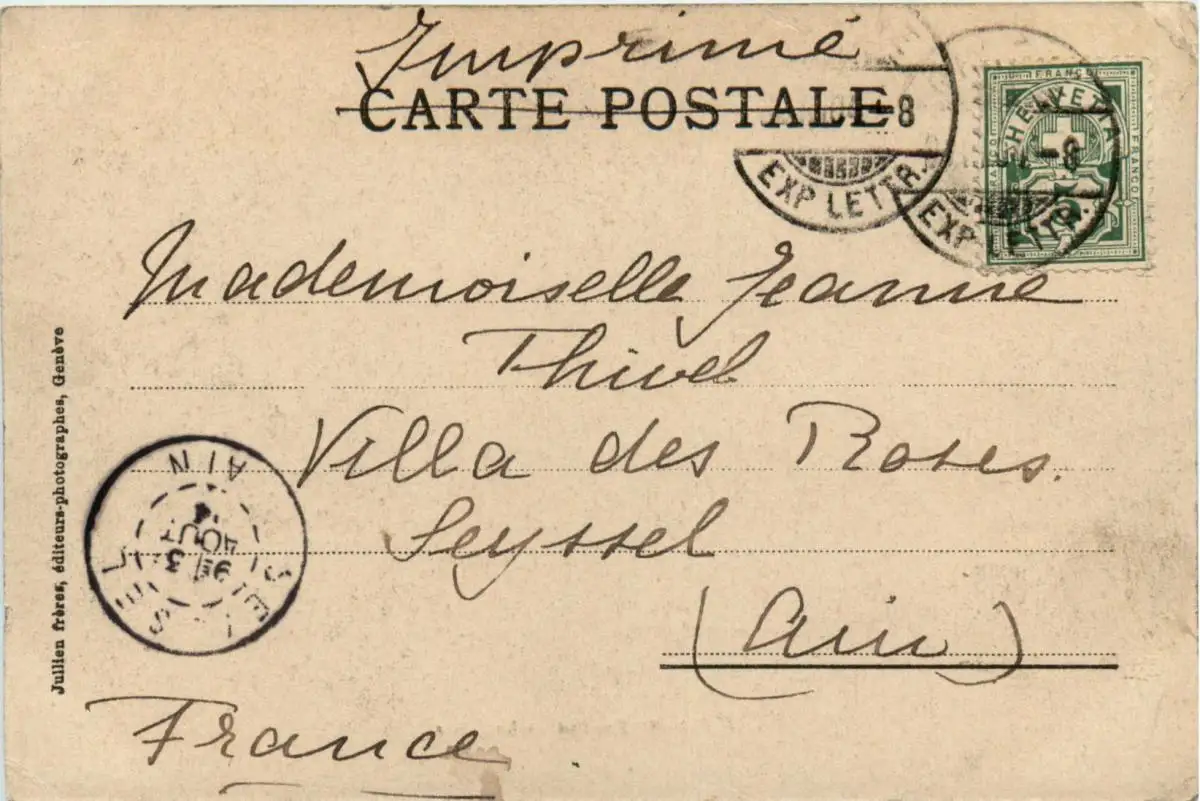 Imprimé
CARTE POSTALE
8
EXP LETTR.
FRANCO
HELVETIA
FRANCO
5
8
EXP. LETTR.
Mademoiselle Jeanne
Thivel
Villa des Roses.
Seyssel
(Ain)
France
Jullien frères, éditeurs-photographes, Genève
SEYSSEL
AIN
3
AOUT